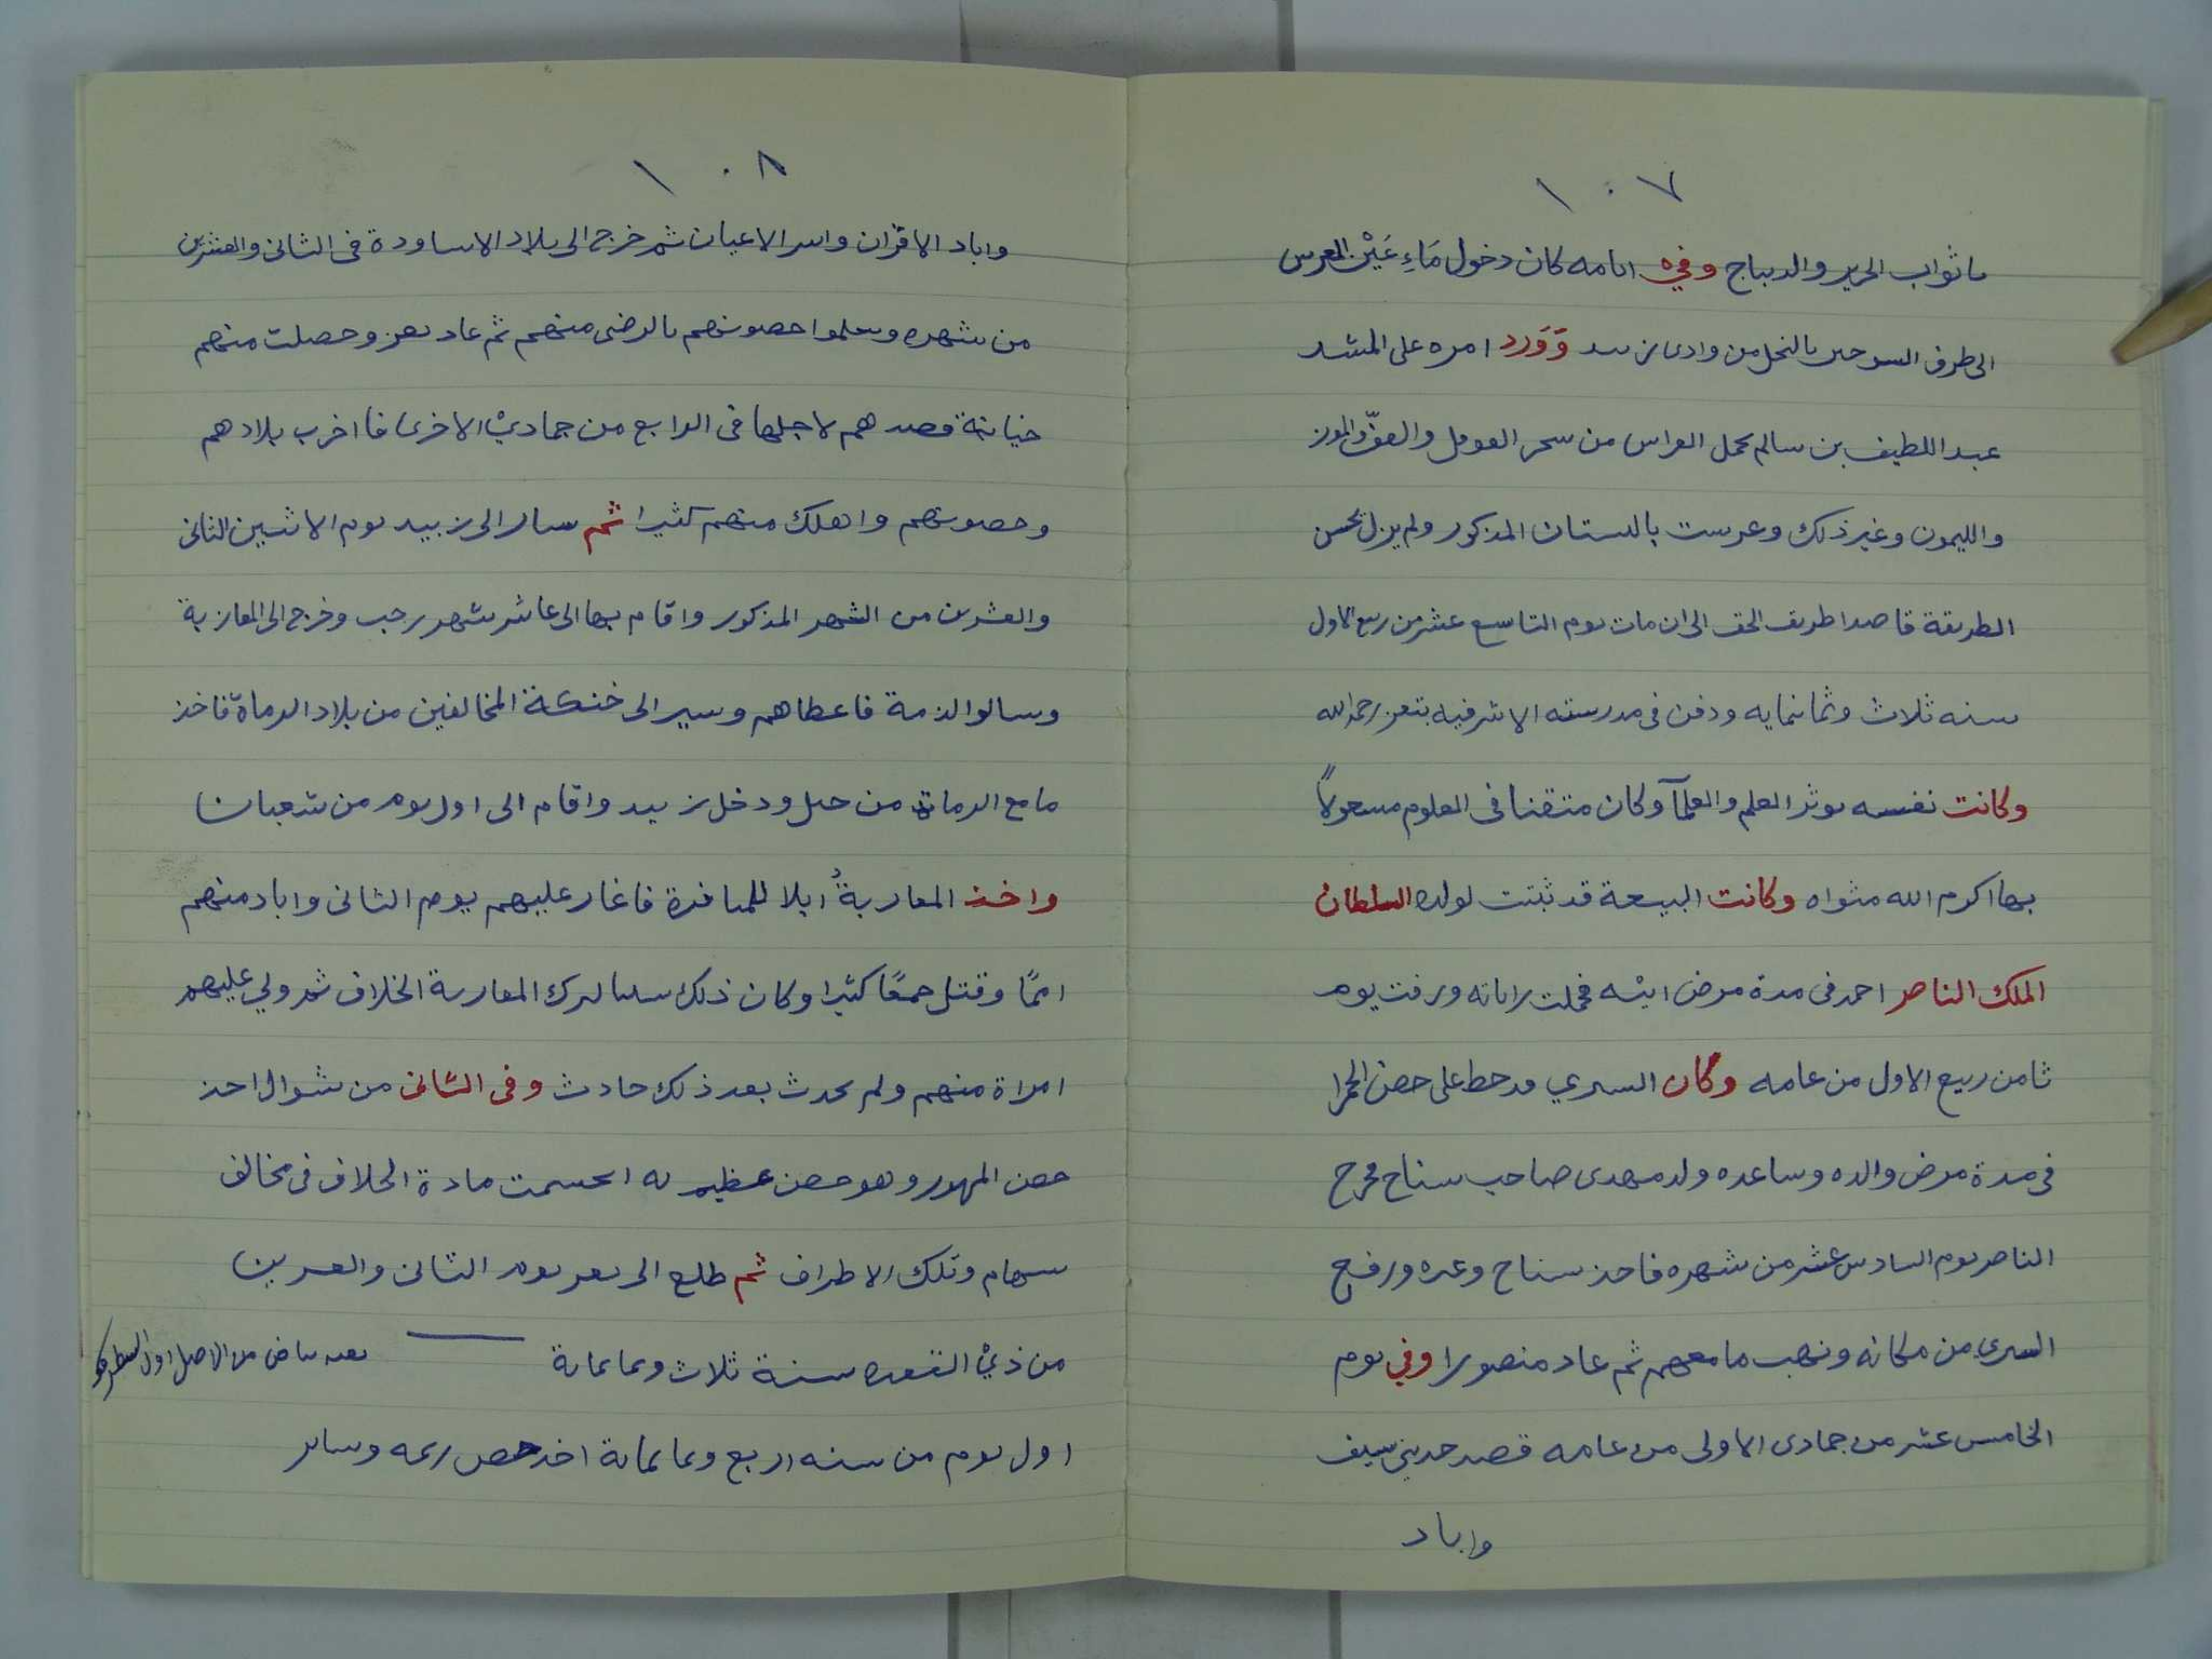 ١٠٧
ماثواب الحرير والديباج وفي ايامه كان دخول مَاءِ عَيْن المعرس
الى طرف السرحين بالنخل من وادى زبيد وَوَرد امره على المشد
عبد اللطيف بن سالم بحمل الغراس من سحر الفوفل والفوّ والموز
والليمون وغير ذلك وغرست بالبستان المذكور ولم يزل بحسن
الطريقة قاصدا طريف الحق الى ان مات يوم التاسع عشر من ربيع الاول
سنه ثلاث وثمانمايه ودفن في مدرسته الاشرفيه بتعز رحمه الله
وكانت نفسه يوثر العلم والعلمآ وكان متقنا فى العلوم مشغولاً
بها اكرم الله مثواه وكانت البيعة قد ثبتت لولده السلطان
الملك الناصر احمد فى مدة مرض ابيه فحملت راياته ورفت يوم
ثامن ربيع الاول من عامه وكان السيرى قد حط على حصن الحمرا
فى مدة مرض والده وساعده ولد مهدى صاحب سناح فخرج
الناصر يوم السادس عشر من شهره فاخذ سناح وغيره ورفع
السيرى من مكانه ونهب ما معهم ثم عاد منصورا وفي يوم
الخامس عشر من جمادى الاولى من عامه قصد حديني سيف
واباد
١٠٨
واباد الاقران واسر الاعيان ثم خرج الى بلاد الاساودة فى الثانى والعشرين
من شهره وسلموا حصونهم بالرضى منهم ثم عاد تعز وحصلت منهم
خيانة قصدهم لاجلها فى الرابع من جمادىْ الاخرى فا اخرب بلادهم
وحصونهم واهلك منهم كثيرا ثم سار الى زبيد يوم الاثنين الثانى
والعشرين من الشهر المذكور واقام بها الى عاشر شهر رجب وخرج الى المعازبة
وسالوا الذمة فاعطاهم وسير الى خنكة المخالفين من بلاد الرماة فاخذ
ما مع الرماة من خيل ودخل زبيد واقام الى اول يوم من شعبان
واخذ المعازبةُ ابلا للمنافرة فاغار عليهم يوم الثانى واباد منهم
اممًا وقتل جمعًا كثيرا وكان ذلك سببا لترك المعازبة الخلاف ثم ولي عليهم
امراة منهم ولم يحدث بعد ذلك حادث وفى الثانى من شوال اخذ
حصن المهدور وهو حصن عظيم به انحسمت مادة الخلاف فى مخالف
سهام وتلك الاطراف ثم طلع الى تعز يوم الثانى والعشرين
من ذيْ القعده سنة ثلاث وثمانماية بعده بياض من الاصل اول السطر
اول يوم من سنه اربع وثمانماية اخذ حصن ريمه وساير